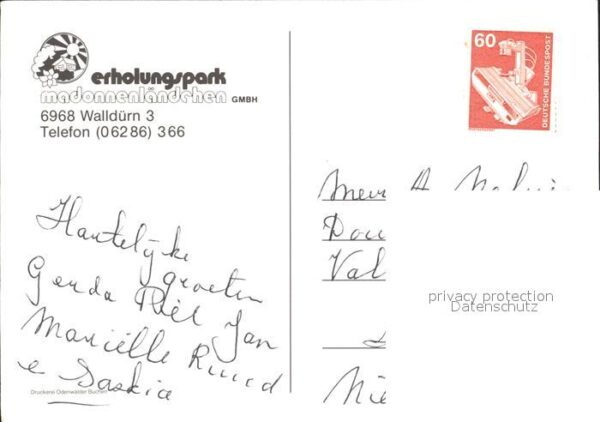 erholungspark
madonnenländchen GMBH
6968 Walldürn 3
Telefon (06286) 366
60
DEUTSCHE BUNDESPOST
Hartelijke
groeten
Gerda Piet Jan
Mariëlle Ruud
e Saskia
Druckerei Odenwälder Buchen
Mevr A
Val
privacy protection
Datenschutz
Nie